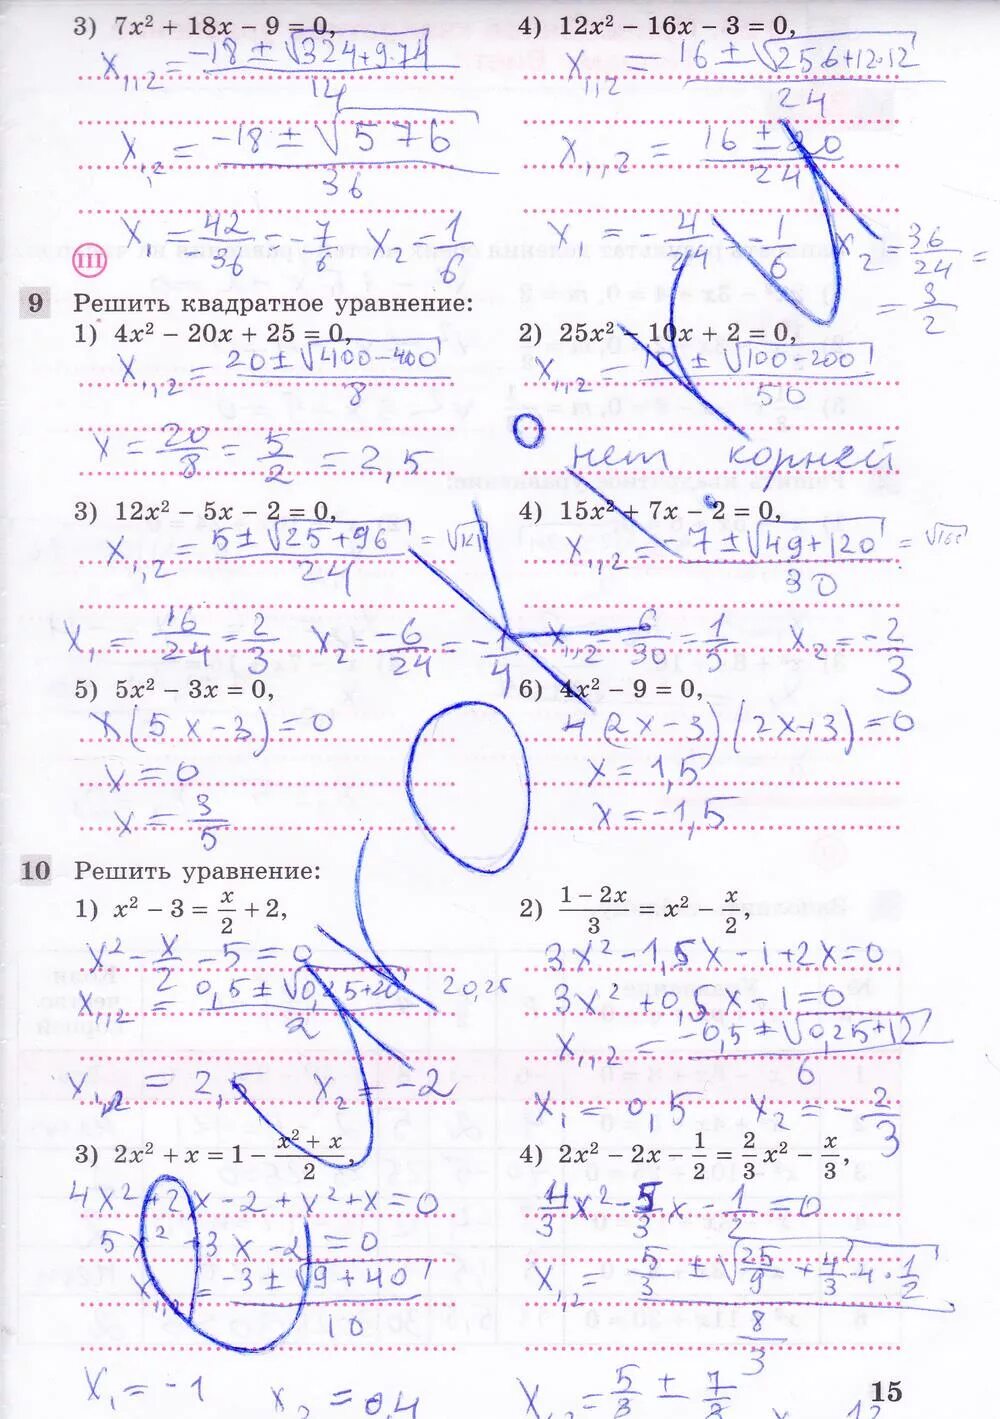 3) 7x² + 18x − 9 = 0,
x₁,₂ = (−18 ± √(324+9·7·4))/14
x₁,₂ = (−18 ± √576)/36
x = 42/−36 = −7/6 x₂ = 1/6
4) 12x² − 16x − 3 = 0,
x₁,₂ = (16 ± √(256+12·12))/24
x₁,₂ = (16 ± 20)/24
x = −4/24 − 1/6 x₂ = 36/24 =
= 3/2
III
9 Решить квадратное уравнение:
1) 4x² − 20x + 25 = 0,
x₁,₂ = (20 ± √(400−400))/8
x = 20/8 = 5/2 = 2,5
2) 25x² − 10x + 2 = 0,
x₁,₂ = (10 ± √(100−200))/50
нет корней
3) 12x² − 5x − 2 = 0,
x₁,₂ = (5 ± √(25+96))/24 = √121
x₁ = 16/24 = 2/3 x₂ = −6/24 = −1/4
4) 15x² + 7x − 2 = 0,
x₁,₂ = (−7 ± √(49+120))/30
x₁,₂ = 6/30 = 1/5 x₂ = −2/3
5) 5x² − 3x = 0,
x(5x−3) = 0
x = 0
x = 3/5
6) 4x² − 9 = 0,
4(2x−3)(2x+3) = 0
x = 1,5
x = −1,5
10 Решить уравнение:
1) x² − 3 = x/2 + 2,
x² − x/2 − 5 = 0
x₁,₂ = (0,5 ± √(0,25+20))/2 20,25
x₁,₂ = 2,5 x₂ = −2
2) (1 − 2x)/3 = x² − x/2,
3x² − 1,5x − 1 + 2x = 0
3x² + 0,5x − 1 = 0
x₁,₂ = (−0,5 ± √(0,25+12))/6
x₁ = 0,5 x₂ = −2/3
3) 2x² + x = 1 − (x² + x)/2,
4x² + 2x − 2 + x² + x = 0
5x² + 3x − 2 = 0
x₁,₂ = (−3 ± √(9+40))/10
x₁ = −1 x₂ = 0,4
4) 2x² − 2x − 1/2 = 2/3 x² − x/3,
4/3 x² − 5/3 x − 1/2 = 0
x₁,₂ = (5/3 ± √(25/9 + 4/3 · 4 · 1/2))/(8/3)
15